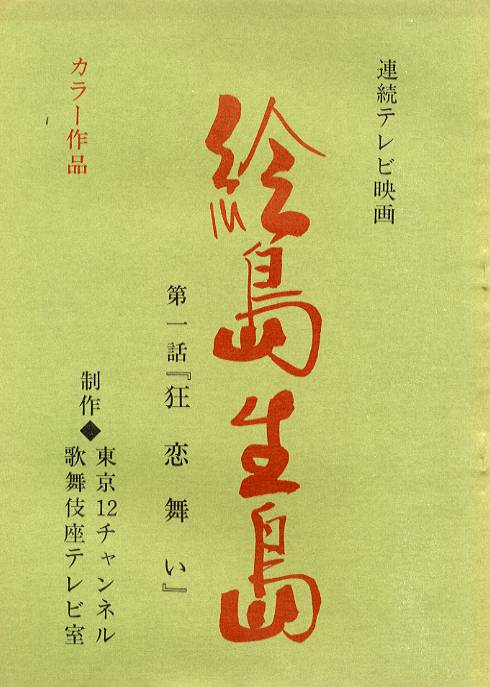 連続テレビ映画
絵島生島
第一話『狂恋舞い』
カラー作品
制作◆東京12チャンネル
歌舞伎座テレビ室